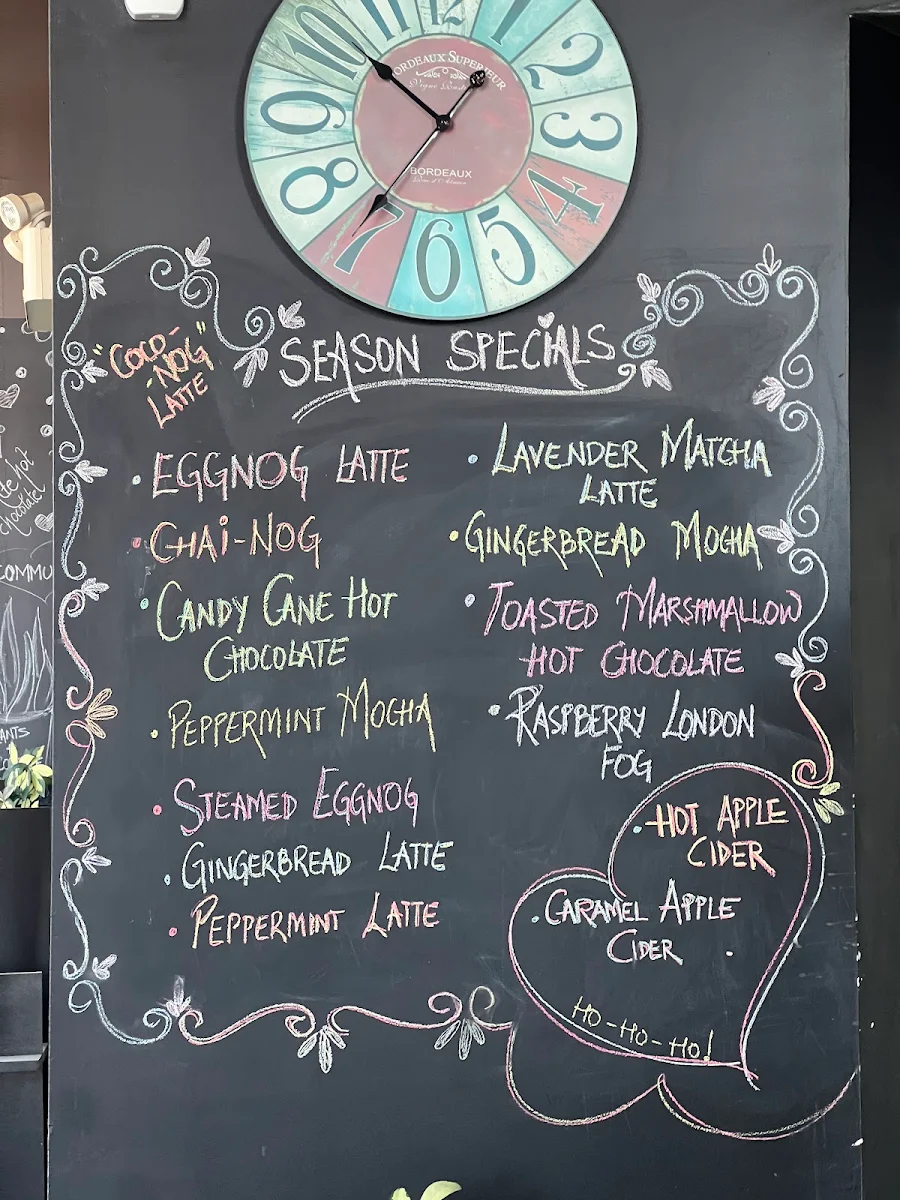 10
11
12
1
2
3
4
5
6
7
8
9
BORDEAUX SUPERIEUR
BORDEAUX
SEASON SPECIALS
"COCO-
-NOG"
LATTE
• EGGNOG LATTE
• CHAI-NOG
• CANDY CANE HOT
CHOCOLATE
• PEPPERMINT MOCHA
• STEAMED EGGNOG
• GINGERBREAD LATTE
• PEPPERMINT LATTE
• LAVENDER MATCHA
LATTE
• GINGERBREAD MOCHA
• TOASTED MARSHMALLOW
HOT CHOCOLATE
• RASPBERRY LONDON
FOG
• HOT APPLE
CIDER
• CARAMEL APPLE
CIDER
HO-HO-HO!
hot
chocolate!
COMMU
ANTS